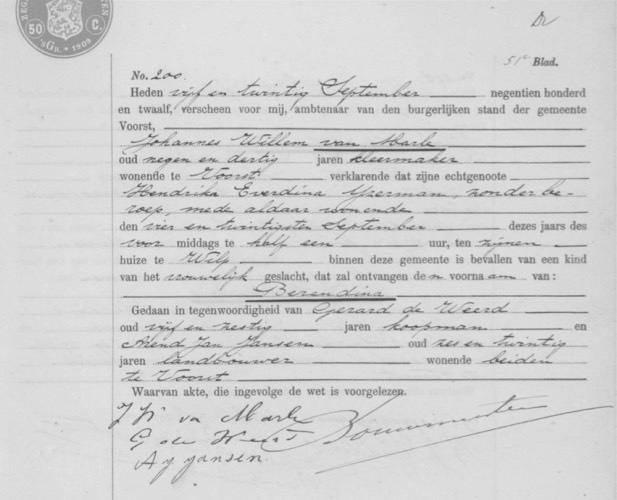 50 C.
'sGr. * 1909
Dr
51e Blad.
No. 200.
Heden vijf en twintig September negentien honderd
en twaalf, verscheen voor mij, ambtenaar van den burgerlijken stand der gemeente
Voorst,
Johannes Willem van Marle
oud negen en dertig jaren kleermaker
wonende te Voorst verklarende dat zijne echtgenoote
Hendrika Everdina Yzerman, zonder be-
roep, mede aldaar wonende
den vier en twintigsten September dezes jaars des
voor middags te half een uur, ten zijnen
huize te Wilp binnen deze gemeente is bevallen van een kind
van het vrouwelijk geslacht, dat zal ontvangen de n voorna am van:
Berendina
Gedaan in tegenwoordigheid van Gerard de Weerd
oud vijf en zestig jaren koopman en
Arend Jan Jansen oud zes en twintig
jaren landbouwer wonende beiden
te Voorst
Waarvan akte, die ingevolge de wet is voorgelezen.
J W va Marle
G de Weerd
A j jansen